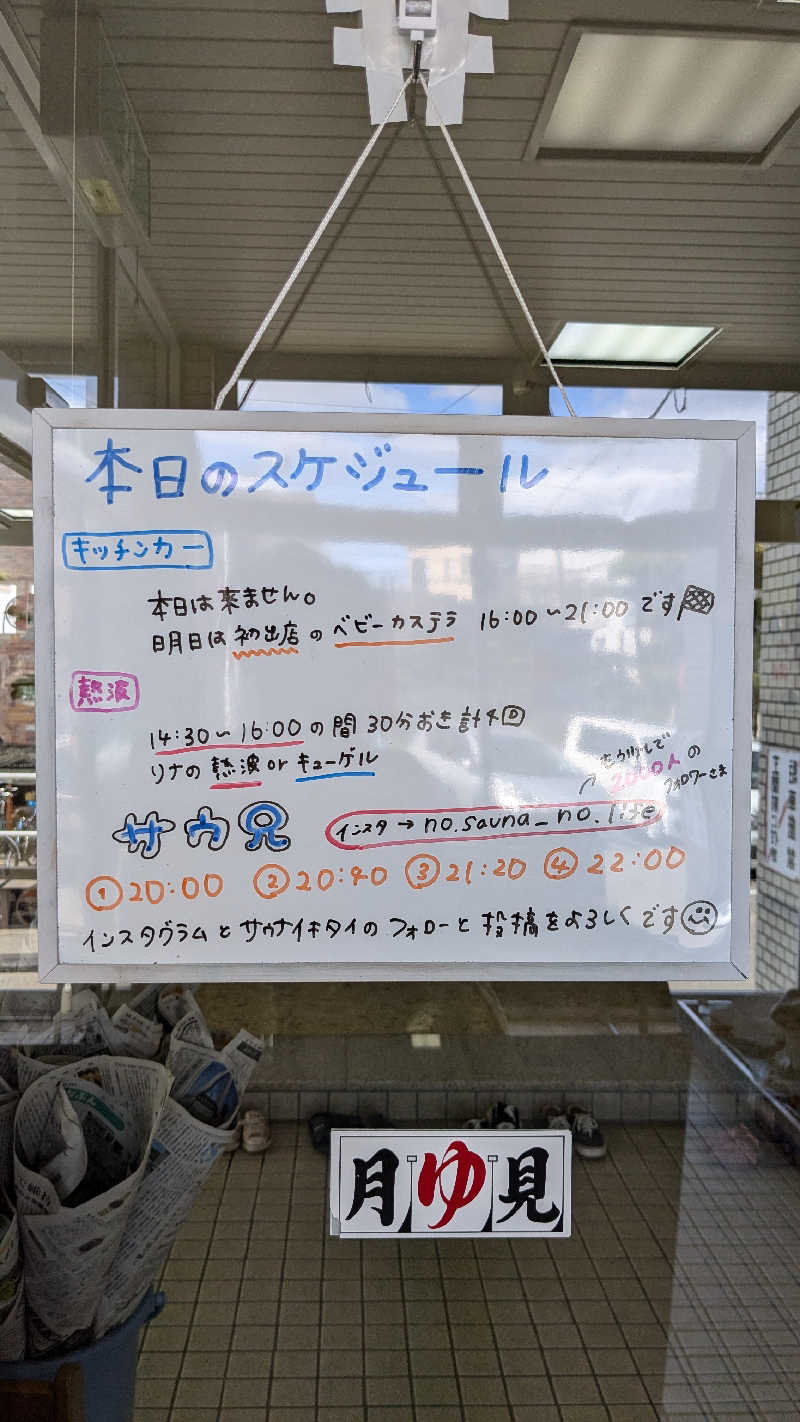 本日のスケジュール
キッチンカー
本日は来ません。
明日は初出店のベビーカステラ 16:00~21:00です
熱波
14:30~16:00の間30分おき計4回
リナの熱波orキューゲル
もう少しで
2000人の
フォロワーさま
サウ兄
インスタ→no.sauna_no.life
①20:00 ②20:40 ③21:20 ④22:00
インスタグラムとサウナイキタイのフォローと投稿をよろしくです
月ゆ見